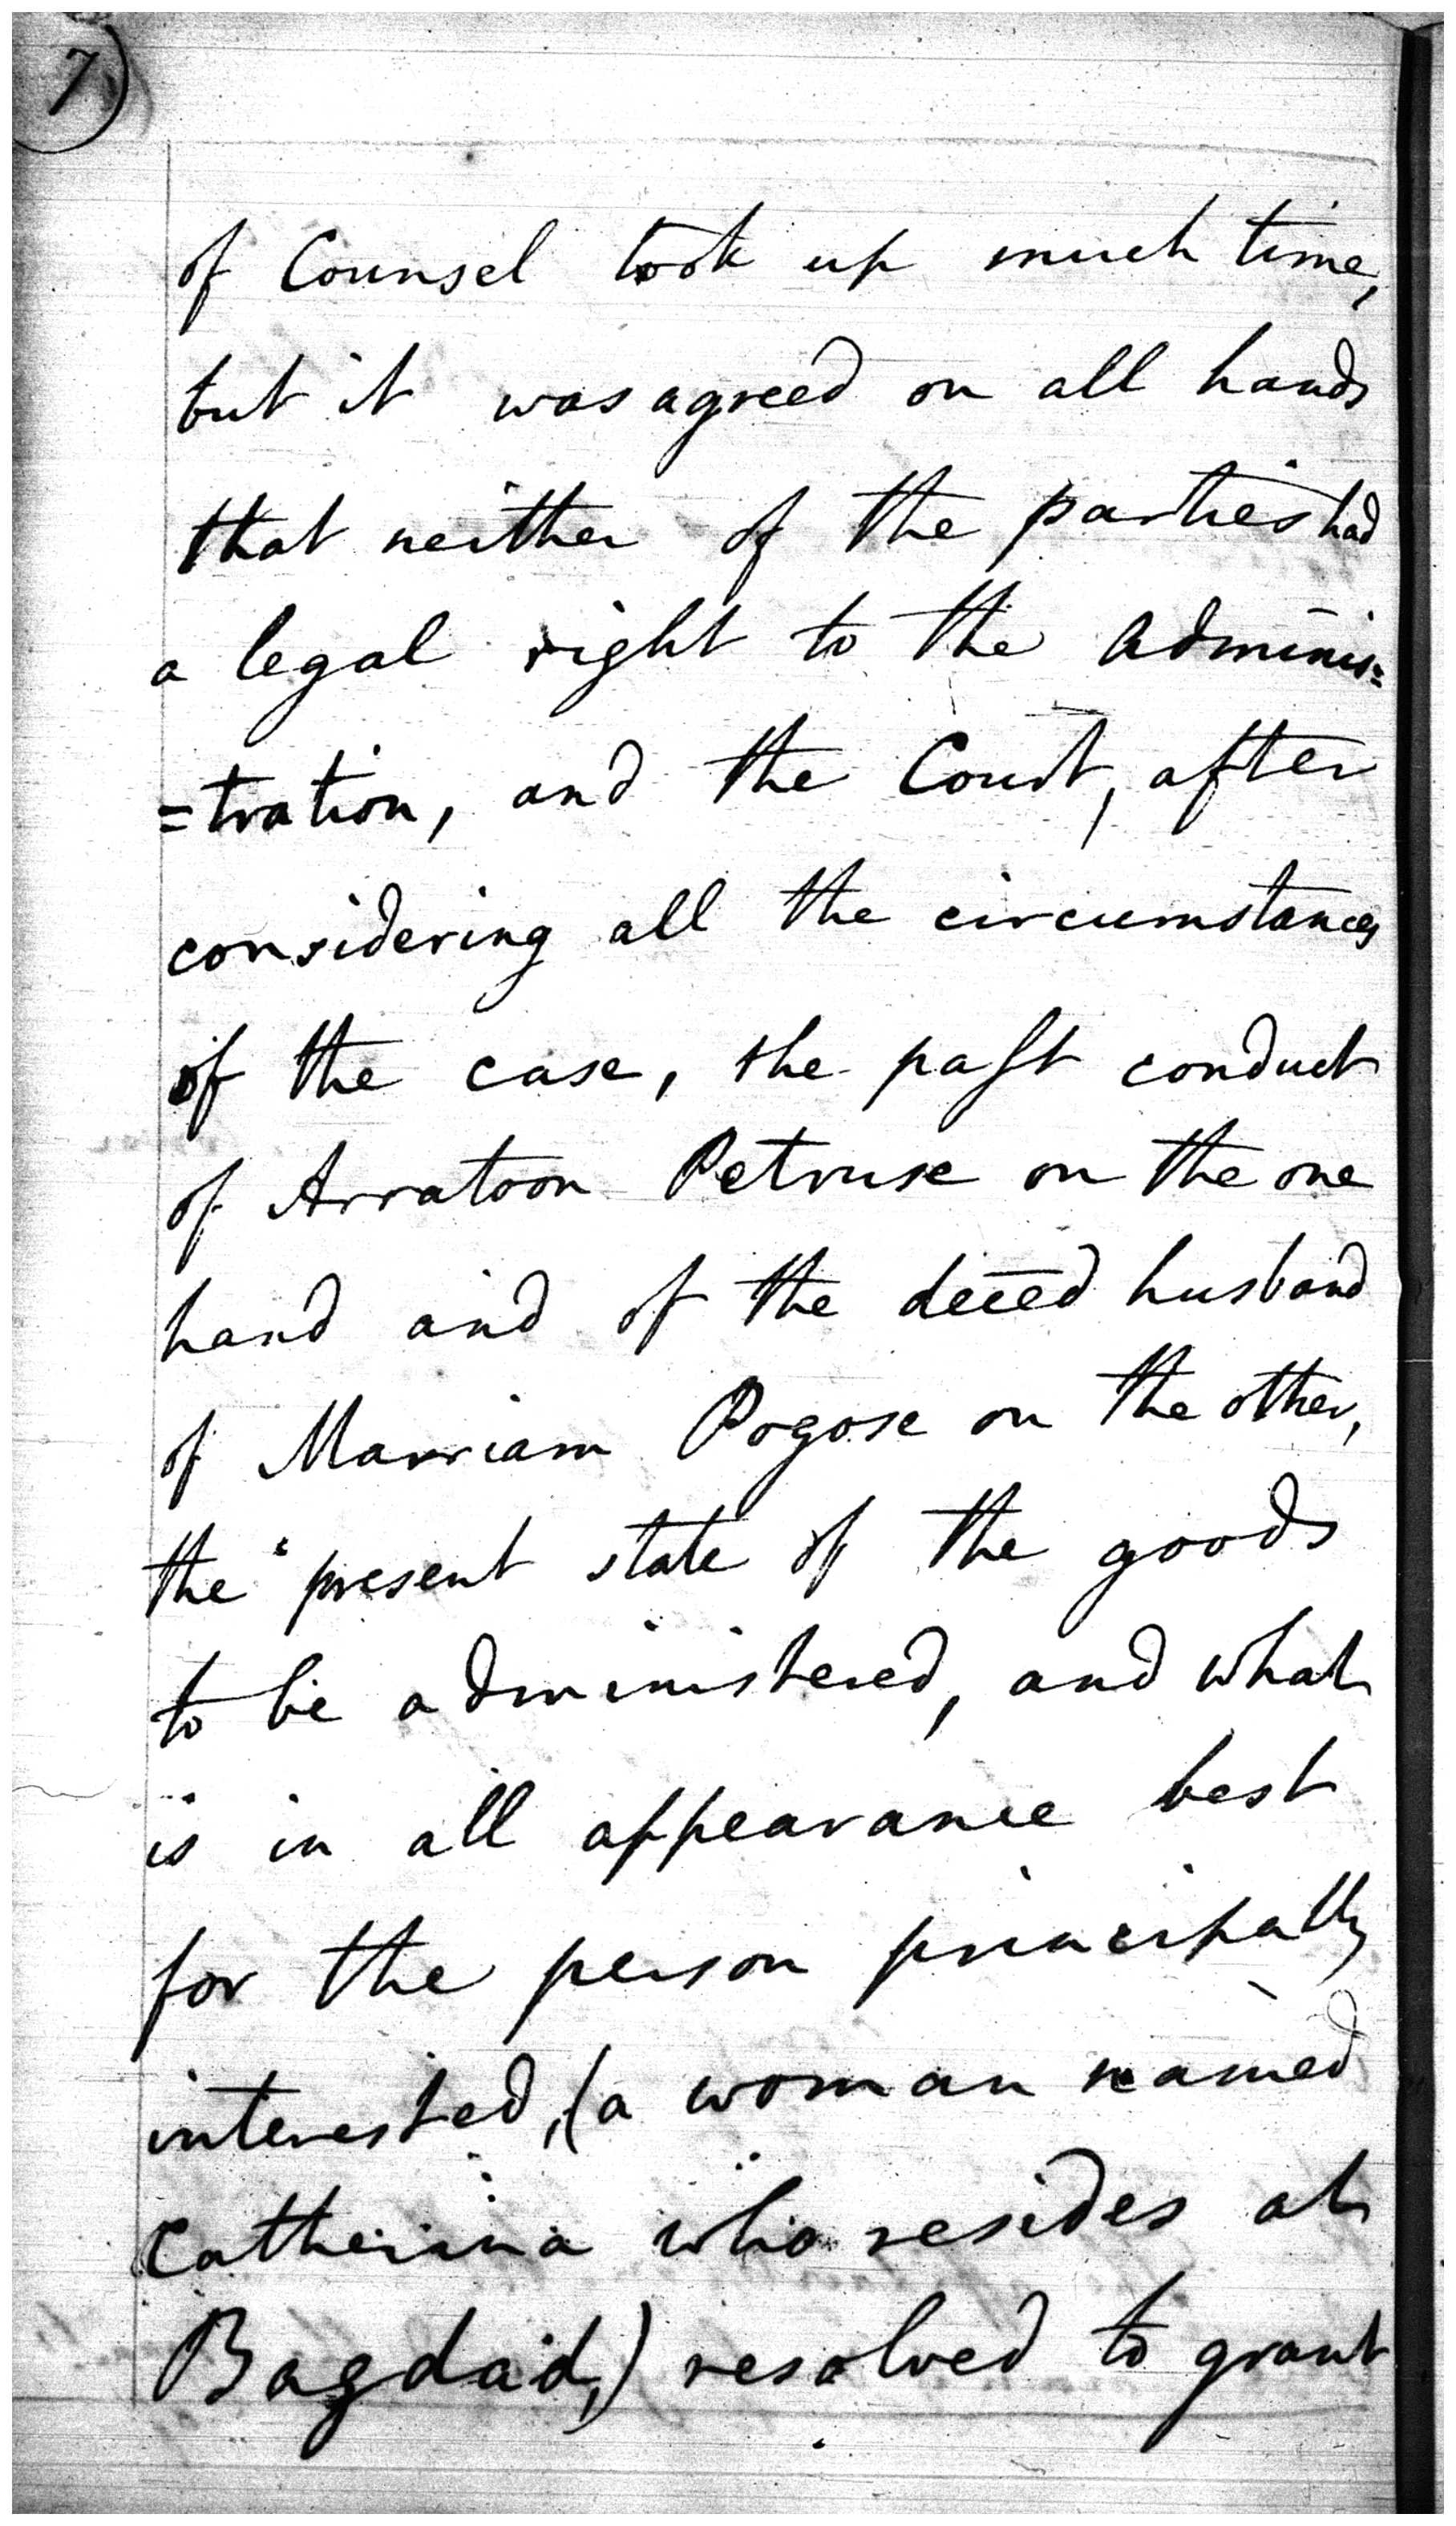 7)
of Counsel took up much time,
but it was agreed on all hands
that neither of the parties had
a legal right to the adminis=
=tration, and the Court, after
considering all the circumstances
of the case, the paſt conduct
of Arratoon Petruse on the one
hand and of the deced husband
of Marriam Pogose on the other,
the present state of the goods
to be administered, and what
is in all appearance best
for the person principally
interested, (a woman named
Catherina who resides at
Bagdad,) resolved to grant